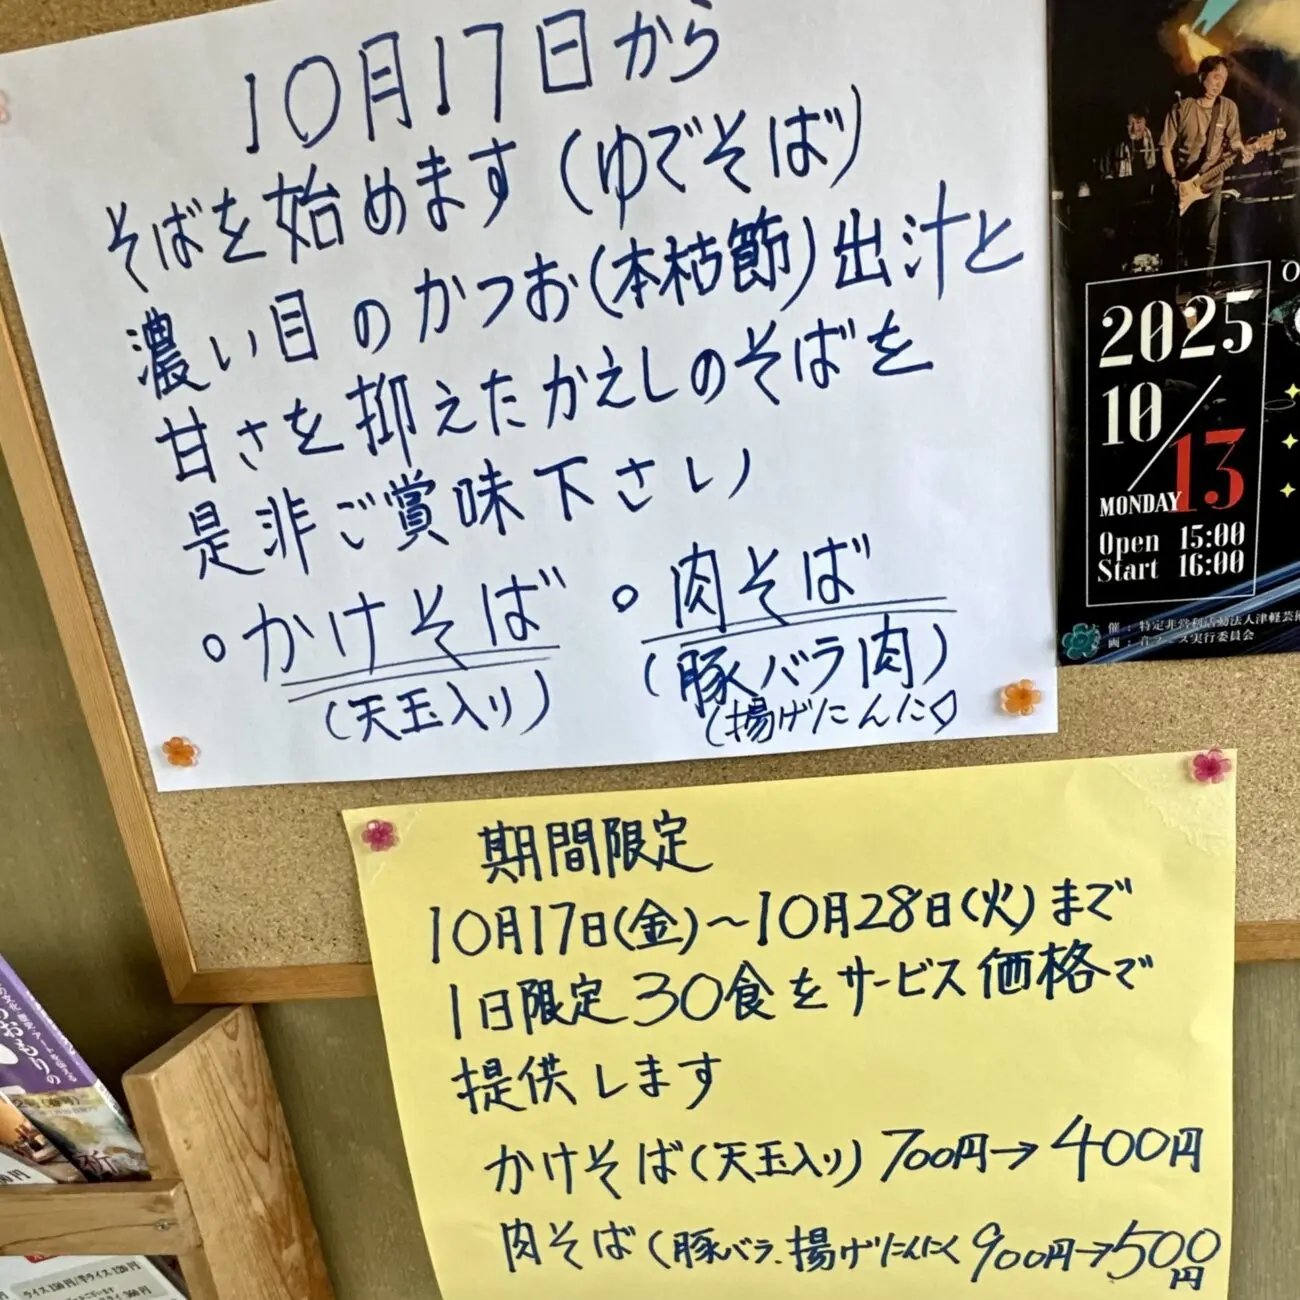 10月17日から
そばを始めます(ゆでそば)
濃い目のかつお(本枯節)出汁と
甘さを抑えたかえしのそばを
是非ご賞味下さい
○かけそば
(天玉入り)
○肉そば
(豚バラ肉)
(揚げにんにく)
2025
10/13
MONDAY
Open 15:00
Start 16:00
催:特定非営利活動法人津軽芸術
期間限定
10月17日(金)~10月28日(火)まで
1日限定30食をサービス価格で
提供します
かけそば(天玉入り)700円→400円
肉そば(豚バラ、揚げにんにく 900円→500円
ライス150円/半ライス120円